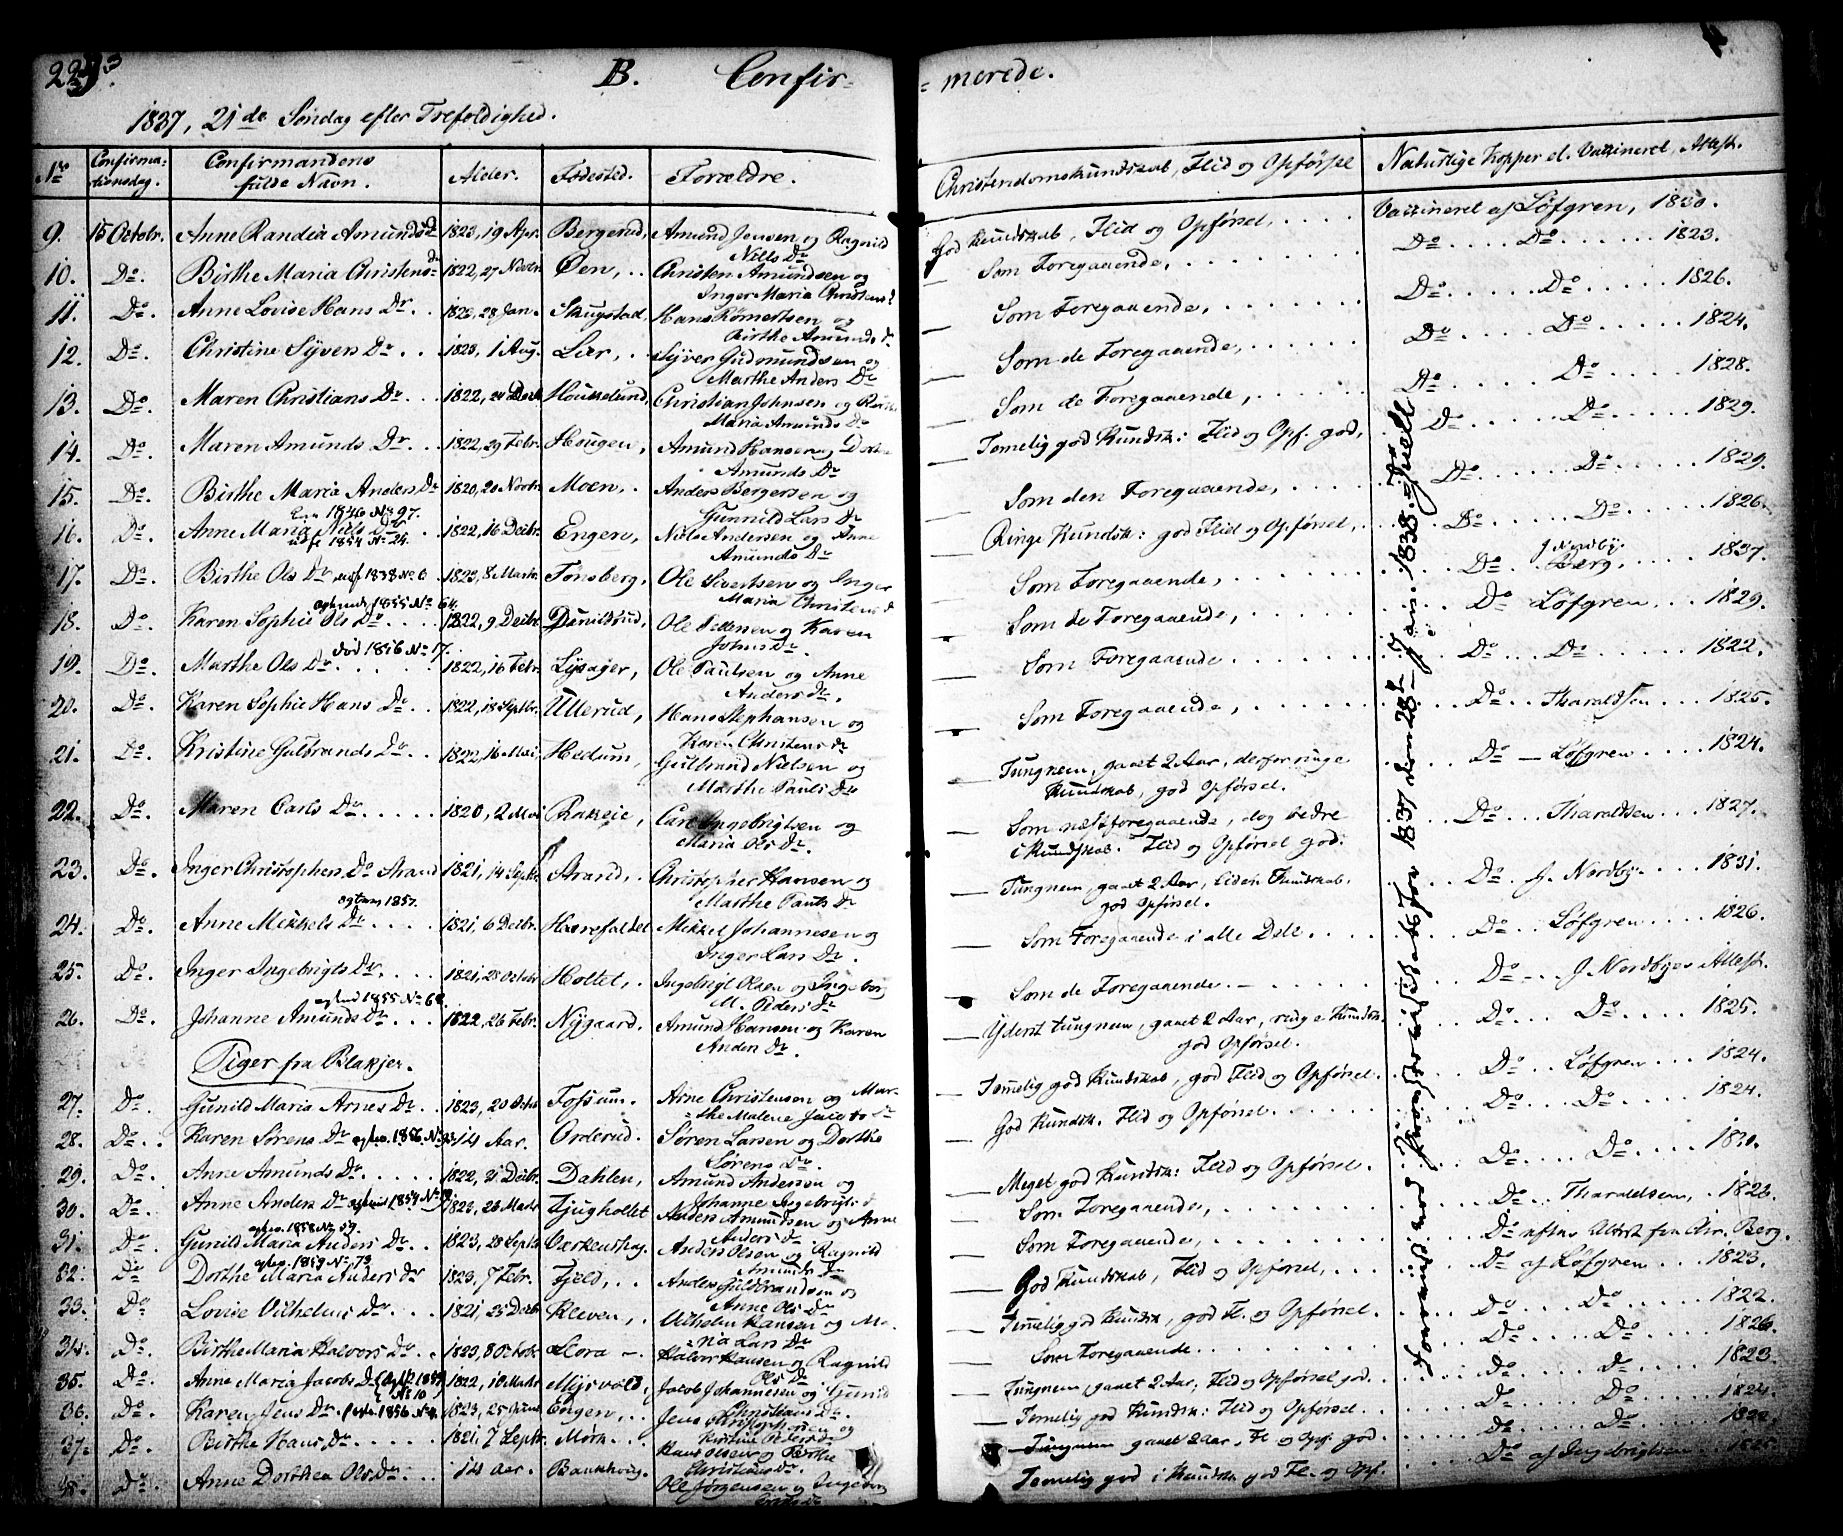 B. Confir-
= merede.
1837, 21de Søndag efter Trefoldighed.
No Confirma-tionsdag. Confirmandens fulde Navn. Alder. Fødested. Forældre. Christendomskundskab, Flid og Opførsel Naturlige Kopper el. Vaccineret, Attest.
9. 15 Octobr. Anne Randia Amundsd 1823, 19 Apr. Bergerud, Amund Jensen og Ragnild Nills Dr God Kundskab, Flid og Opførsel, . . . . Vaccineret af Løfgren, 1830.
10. Do. Birthe Maria Christensdr 1822, 27 Novbr Øen, . . Christen Amundsen og Inger Maria Christens Som Foregaaende, . . . . Do Do . . . . 1823.
11. Do. Anne Lovise Hans Dr. . . 1823, 28 Jan. Skugstad, Hans Rømertsen og Birthe Amunds dr Som Foregaaende, . . . . Do . . . . Do . . . . 1826.
12. Do. Christine Syvers Dr. . . 1823, 1 Aug. Lær, . . Syver Gudmundsen og Marthe Anders Dr Som de Foregaaende, . . . . Do . . . . Do . . . . 1824.
13. Do. Maren Christians Dr. . . 1822, 24 Decbr Houkselund, Christian Johnsen og Maria Amunds Dr Som de Foregaaende, . . . . Do . . . . Do . . . . 1828.
14. Do. Maren Amunds Dr. . . 1822, 29 Febr. Hougen, Amund Hansen og Amunds Dr Temelig god Kundsk: Flid og Opf. god, Do . . . . Do . . . . 1829.
15. Do. Birthe Maria Anders Dr 1820, 20 Novbr. Moen, . Anders Bergersen og Gunnild Lars Dr Som den Foregaaende, . . . . Do . . . . Do . . . . 1829.
1846 No 97.
16. Do. Anne Maria Niels Dr 1822, 16 Decbr. Engen, Niels Andersen og Anne Amunds Dr Ringe Kundsk: god Flid og Opførsel, Do . . . . Do . . . . 1826.
1854 No 24.
17. Do. Birthe Ols Dr 1838 No 6 1823, 8 Marts Tonsberg, Ole Sivertsen og Inger Maria Christens d Som Foregaaende, . . . . Do J Nordby. Berg, . . . 1837.
1855 No 64.
18. Do. Karen Sophie Ols Dr. . . 1822, 9 Decbr. Danielsrud, Ole Pettersen og Karen Johns Dr. Som de Foregaaende, . . . . Do Løfgren . . . 1829.
død 1856 No 17.
19. Do. Marthe Ols Dr. . . 1822, 16 Febr. Lysager, Ole Paulsen og Anne Anders Dr. Som Foregaaende . . . . Do . . . Do . . . . 1822.
20. Do. Karen Sophie Hans Dr. . . 1822, 18 Septbr. Ullerud, Hans Stephansen og Karen Christens Dr Som Foregaaende, . . . . Do . . . Tharaldsen . . . 1825.
21. Do. Kristine Gulbrands Dr. . . 1822, 16 Mai, Hedum, Gulbrand Nielsen og Marthe Pauls Dr Tungnem, gaaet 2 Aar, derfor ringe Kundskab, god Opførsel. Do — Løfgren . . . . 1824.
22. Do. Maren Carls Dr. . . . 1820, 2 Mai Rakkeie, Carl Ingebrigtsen og Maria Ols Dr. Som næstforegaaende, dog bedre i Kundskab. Flid og Opførsel god: Do . . . Tharaldsen . . . 1827.
23. Do. Inger Christophers Dr Strand 1821, 14 Septbr Strand, . Christopher Hansen og Marthe Pauls Dr Tungnem, gaaet 2 Aar, liden Kundskab, god Opførsel. Do . . . J. Nordbye . . . . 1831.
1857.
24. Do. Anne Mikkels Dr. . . . 1821, 6 Decbr. Harefaldet Mikkel Johannesen og Inger Lars Dr. Som Foregaaende i alle Dele. . . . Do . . . Løfgren . . . . 1826.
25. Do. Inger Ingebrigts Dr. . . . 1821, 28 Octobr Holtet, Ingebrigt Olsen og Ingeborg M. Peders Dr Som de Foregaaende. — . . . Do . . . J. Nordbyes Attest.
1855 No 68.
26. Do. Johanne Amunds Dr. . . . 1822, 26 Febr. Nygaard. Amund Hansen og Karen Anders Dr. Yderst tungnem, gaaet 2 Aar, ringe Kundsk. god Opførsel. Do . . . Do . . . . 1825.
Piger fra Blakjer.
27. Do. Gunild Maria Arnes Dr. . . 1823, 20 Octbr Fossum. Arne Christensen og Mar-the Malene Jacobs Dr Temelig god Kundskab, god Flid og Opførsel. Do . . . Løfgren . . . . 1824.
28. Do. . Karen Sørens Dr 1856. 14 Aar. Orderud. Søren Larsen og Dorthe Sørens Dr. God Kundsk. Flid og Opførsel. . . . Do . . . Do . . . . 1824.
29. Do. Anne Amunds Dr. . . . 1822, 21 Decbr. Dahlen, Amund Anderson og Johanne Ingebrigts d Meget god Kundsk: Flid og Opførsel. . . . Do . . . Do . . . . 1830.
30. Do. Anne Anders Dr 1854 1823, 26 Marts Tjugholtet Anders Amundsen og Anne Anders d Som Foregaaende, . . . . Do . . . Tharaldsen, . 1823.
1858 No 59.
31. Do. Gunild Maria Anders Dr. . . 1823, 28 Septbr Værkenshag. Anders Olsen og Ragnild Amunds Dr Som Foregaaende, . . . . Do Berg.
1859 No. 73
32. Do Dorthe Maria Anders Dr 1823, 7 Febr. Fjeld, . . Anders Gulbrandsen og Anne Ols Dr God Kundskab, Flid og Opførsel, . . . Do af Løfgren . . . . 1823.
33. Do Lovise Vilhelms Dr. . . . 1821, 25 Decbr Kleven, . Vilhelm Hansen og Ma-ria Lars Dr Temelig god Kundsk, god Fl. og Opførsel. Do . . . Do . . . . 1822.
34. Do. Birthe Maria Halvors Dr. . . 1823, 8 Octobr. Slora — . Halvor Hansen og Ragnild Ols Dr Som Foregaaende. . . . Do . . . Do . . . . 1826.
35. Do. Anne Maria Jacobs D 1822, 18 Marts Mysvold, Jacob Johannesen og Gunild Christians Dr. Tungnem, gaaet 2 Aar, Flid og Opførsel god. Do . . . Do . . . . 1823.
36. Do. Karen Jens Dr. 1856 1823, 25 Engen, . Jens og Kirstine Peders dr Temelig god Kundsk: Flid og Opførsel. . . . Do . . . Do . . . . 1824.
37. Do. Birthe Hans Dr. . . . 1821, 7 Septbr. Mørk . . Hans Olsen og Birthe Christians Dr. Tungnem gaaet 2 Aar, Fl og Opf. god. . . . Do . . . Do . . . . 1822.
38. Do. Anne Dorthea Ols Dr. . . . 14 Aar. . . Bankhoug. Ole Jørgensen og Ingeborg Temelig god i Kundsk god Fl. og Opf. . . . Do af Ingebrigtsen
1837 dem 28de Jan. 1838. Juell